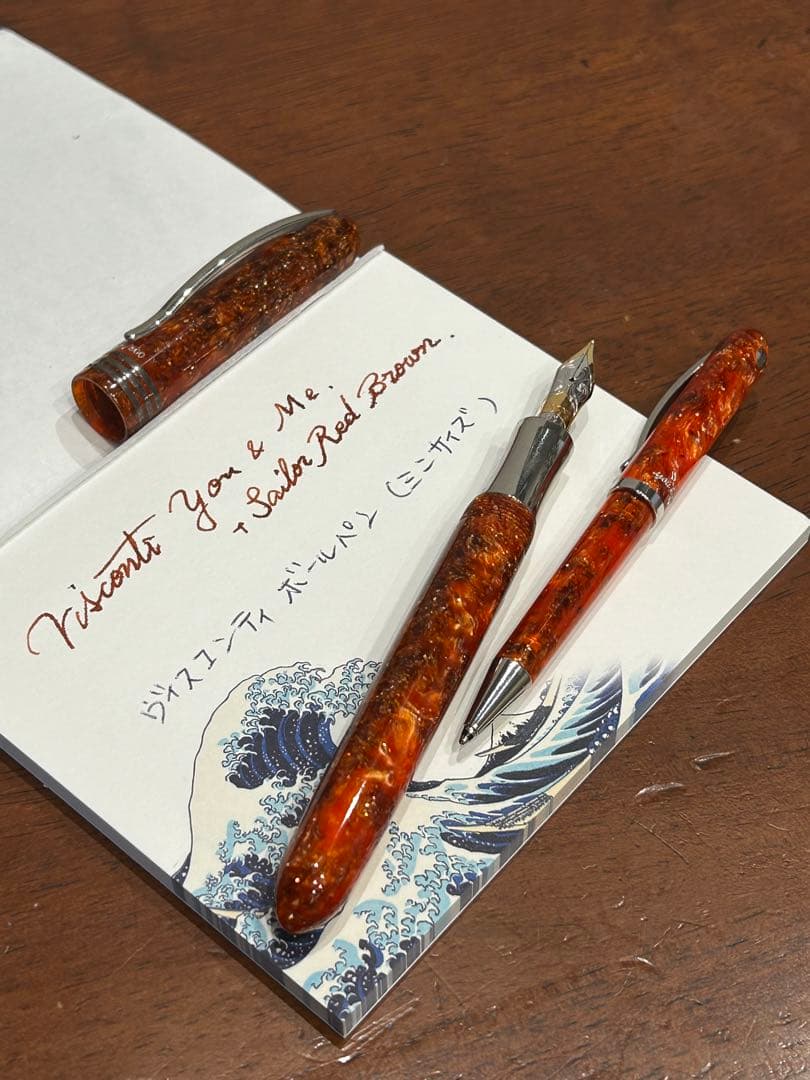 Visconti You & Me.
+ Sailor Red Brown.
ヴィスコンティ ボールペン (ミニサイズ)